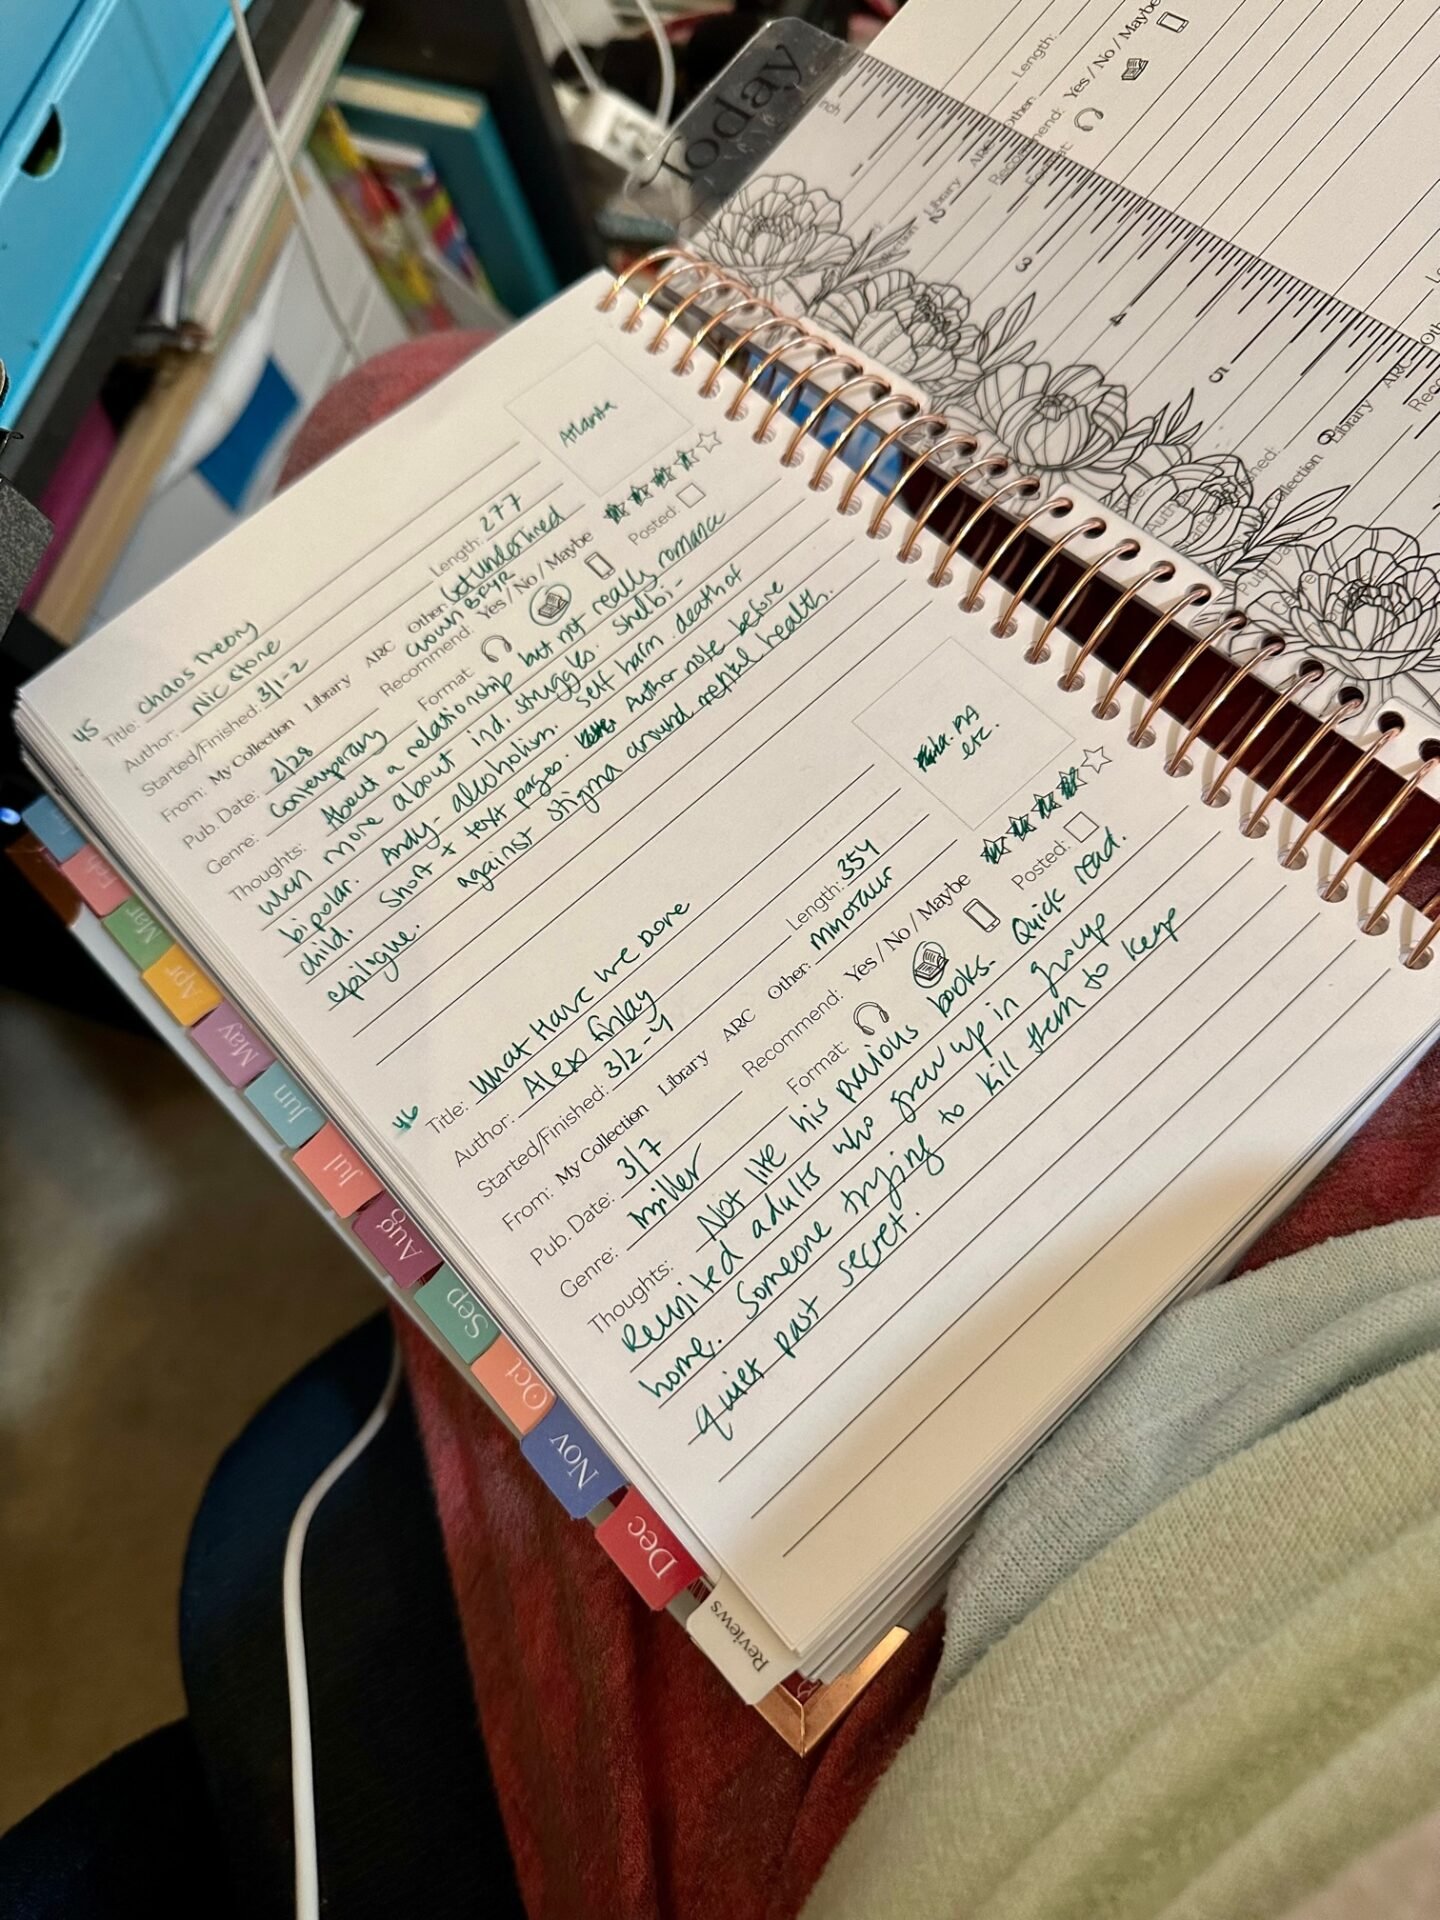 Today
inch
2
3
4
5
Length:
Yes / No / Maybe
45
Title: Chaos Theory
Atlanta
Author: Nic Stone
Length: 277
Started/Finished: 3/1-2
From: My Collection Library ARC Other: Get Underlined
Crown BFYR
Pub. Date: 2/28
Recommend: Yes / No / Maybe
Genre: Contemporary
Format:
Posted:
Thoughts: About a relationship but not really romance
when more about ind. struggles. Shelbi-
bipolar. Andy- alcoholism. self harm. death of
child. Short + text pages. Author note before
epilogue. against stigma around mental health.
46
Title: What Have We Done
PA
etc.
Author: Alex Finlay
Length: 354
Started/Finished: 3/2-4
From: My Collection Library ARC Other: Minotaur
Pub. Date: 3/7
Recommend: Yes / No / Maybe
Genre: thriller
Format:
Posted:
Thoughts: Not like his previous books. Quick read.
Reunited adults who grew up in group
home. Someone trying to kill them to keep
quiet past secret.
Feb
Mar
Apr
May
Jun
Jul
Aug
Sep
Oct
Nov
Dec
Reviews